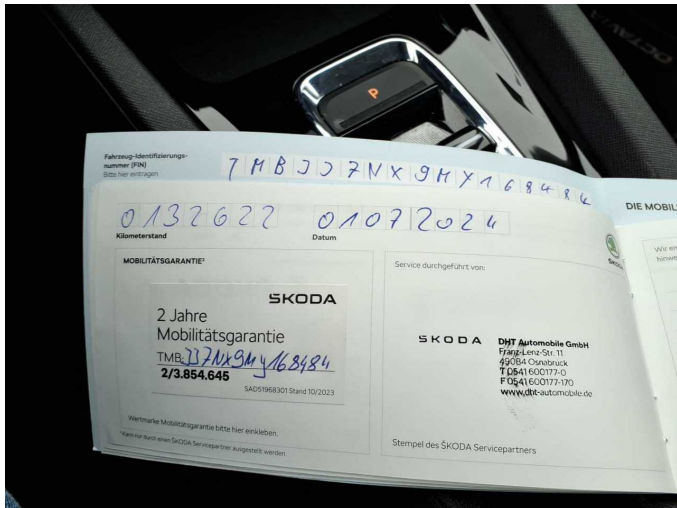 P
OCTAVIA
Fahrzeug-Identifizierungs-
nummer (FIN)
Bitte hier eintragen
TMBJJ7NX9MY168484
0132622
01072024
Kilometerstand
Datum
DIE MOBIL
MOBILITÄTSGARANTIE²
SKODA
2 Jahre
Mobilitätsgarantie
TMB: JJ7NX9MY168484
2/3.854.645
SAD51968301 Stand 10/2023
Wertmarke Mobilitätsgarantie bitte hier einkleben.
²Kann nur durch einen ŠKODA Servicepartner ausgestellt werden.
Service durchgeführt von:
SKODA
SKODA
DHT Automobile GmbH
Franz-Lenz-Str. 11
49084 Osnabrück
T 0541 600177-0
F 0541 600177-170
www.dht-automobile.de
Stempel des ŠKODA Servicepartners
hinwe